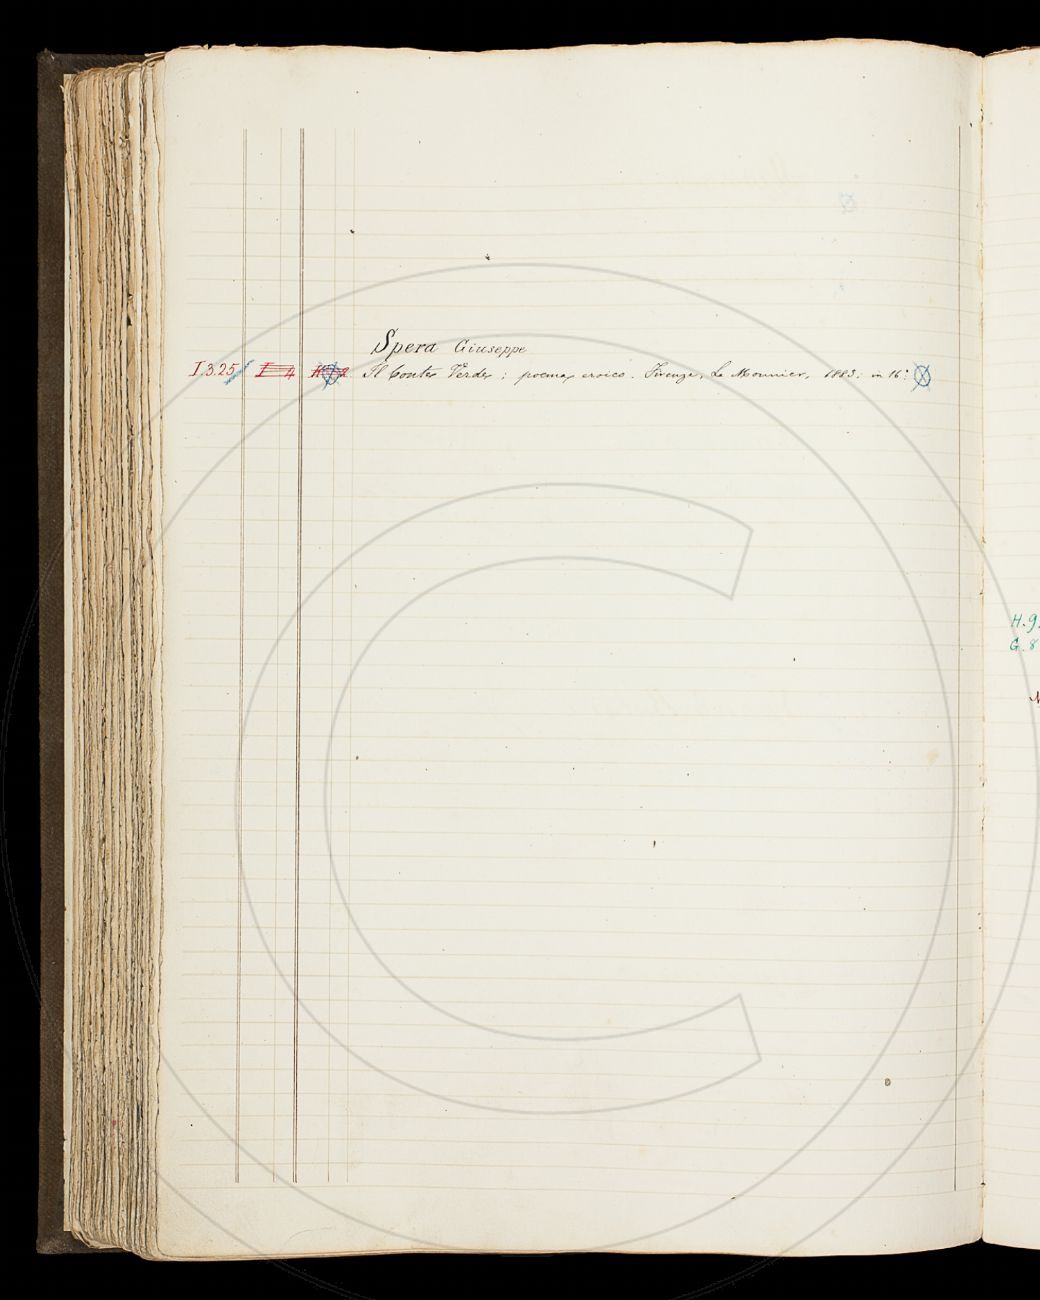 Spera Giuseppe
I.3.25 I 4 Il Conte Verde; poema eroico. Firenze, Le Monnier, 1883; in 16°
H.9.
G.8